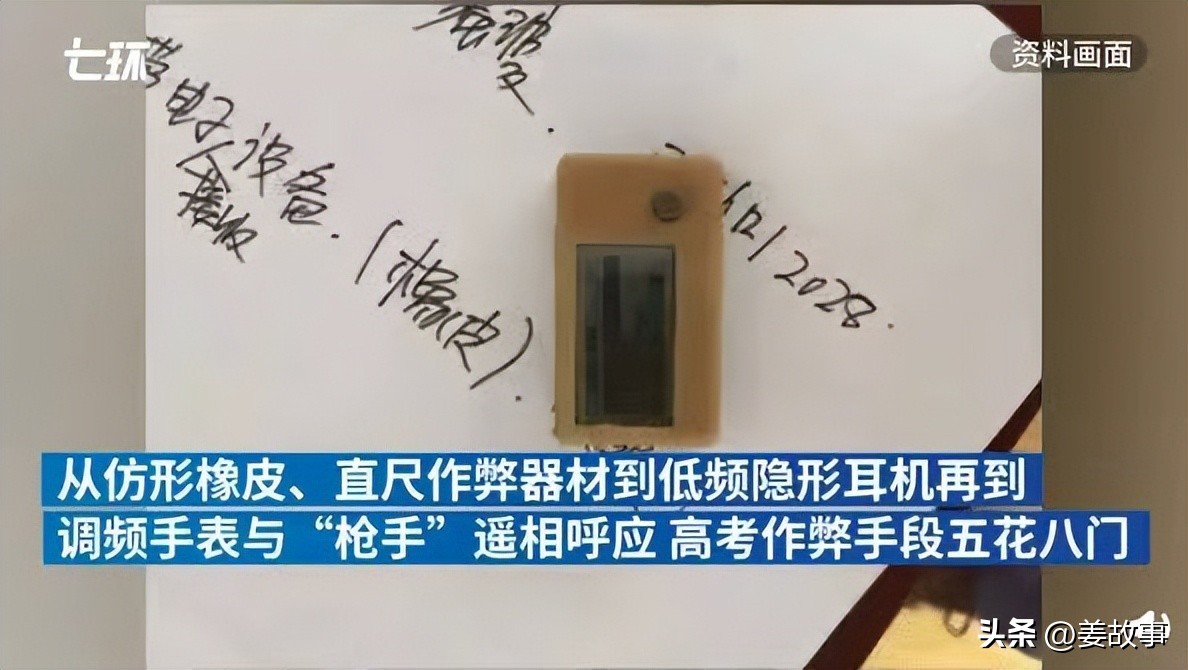 七环
资料画面
电子设备.
(橡皮).
2028.
从仿形橡皮、直尺作弊器材到低频隐形耳机再到
调频手表与“枪手”遥相呼应 高考作弊手段五花八门
头条 @姜故事